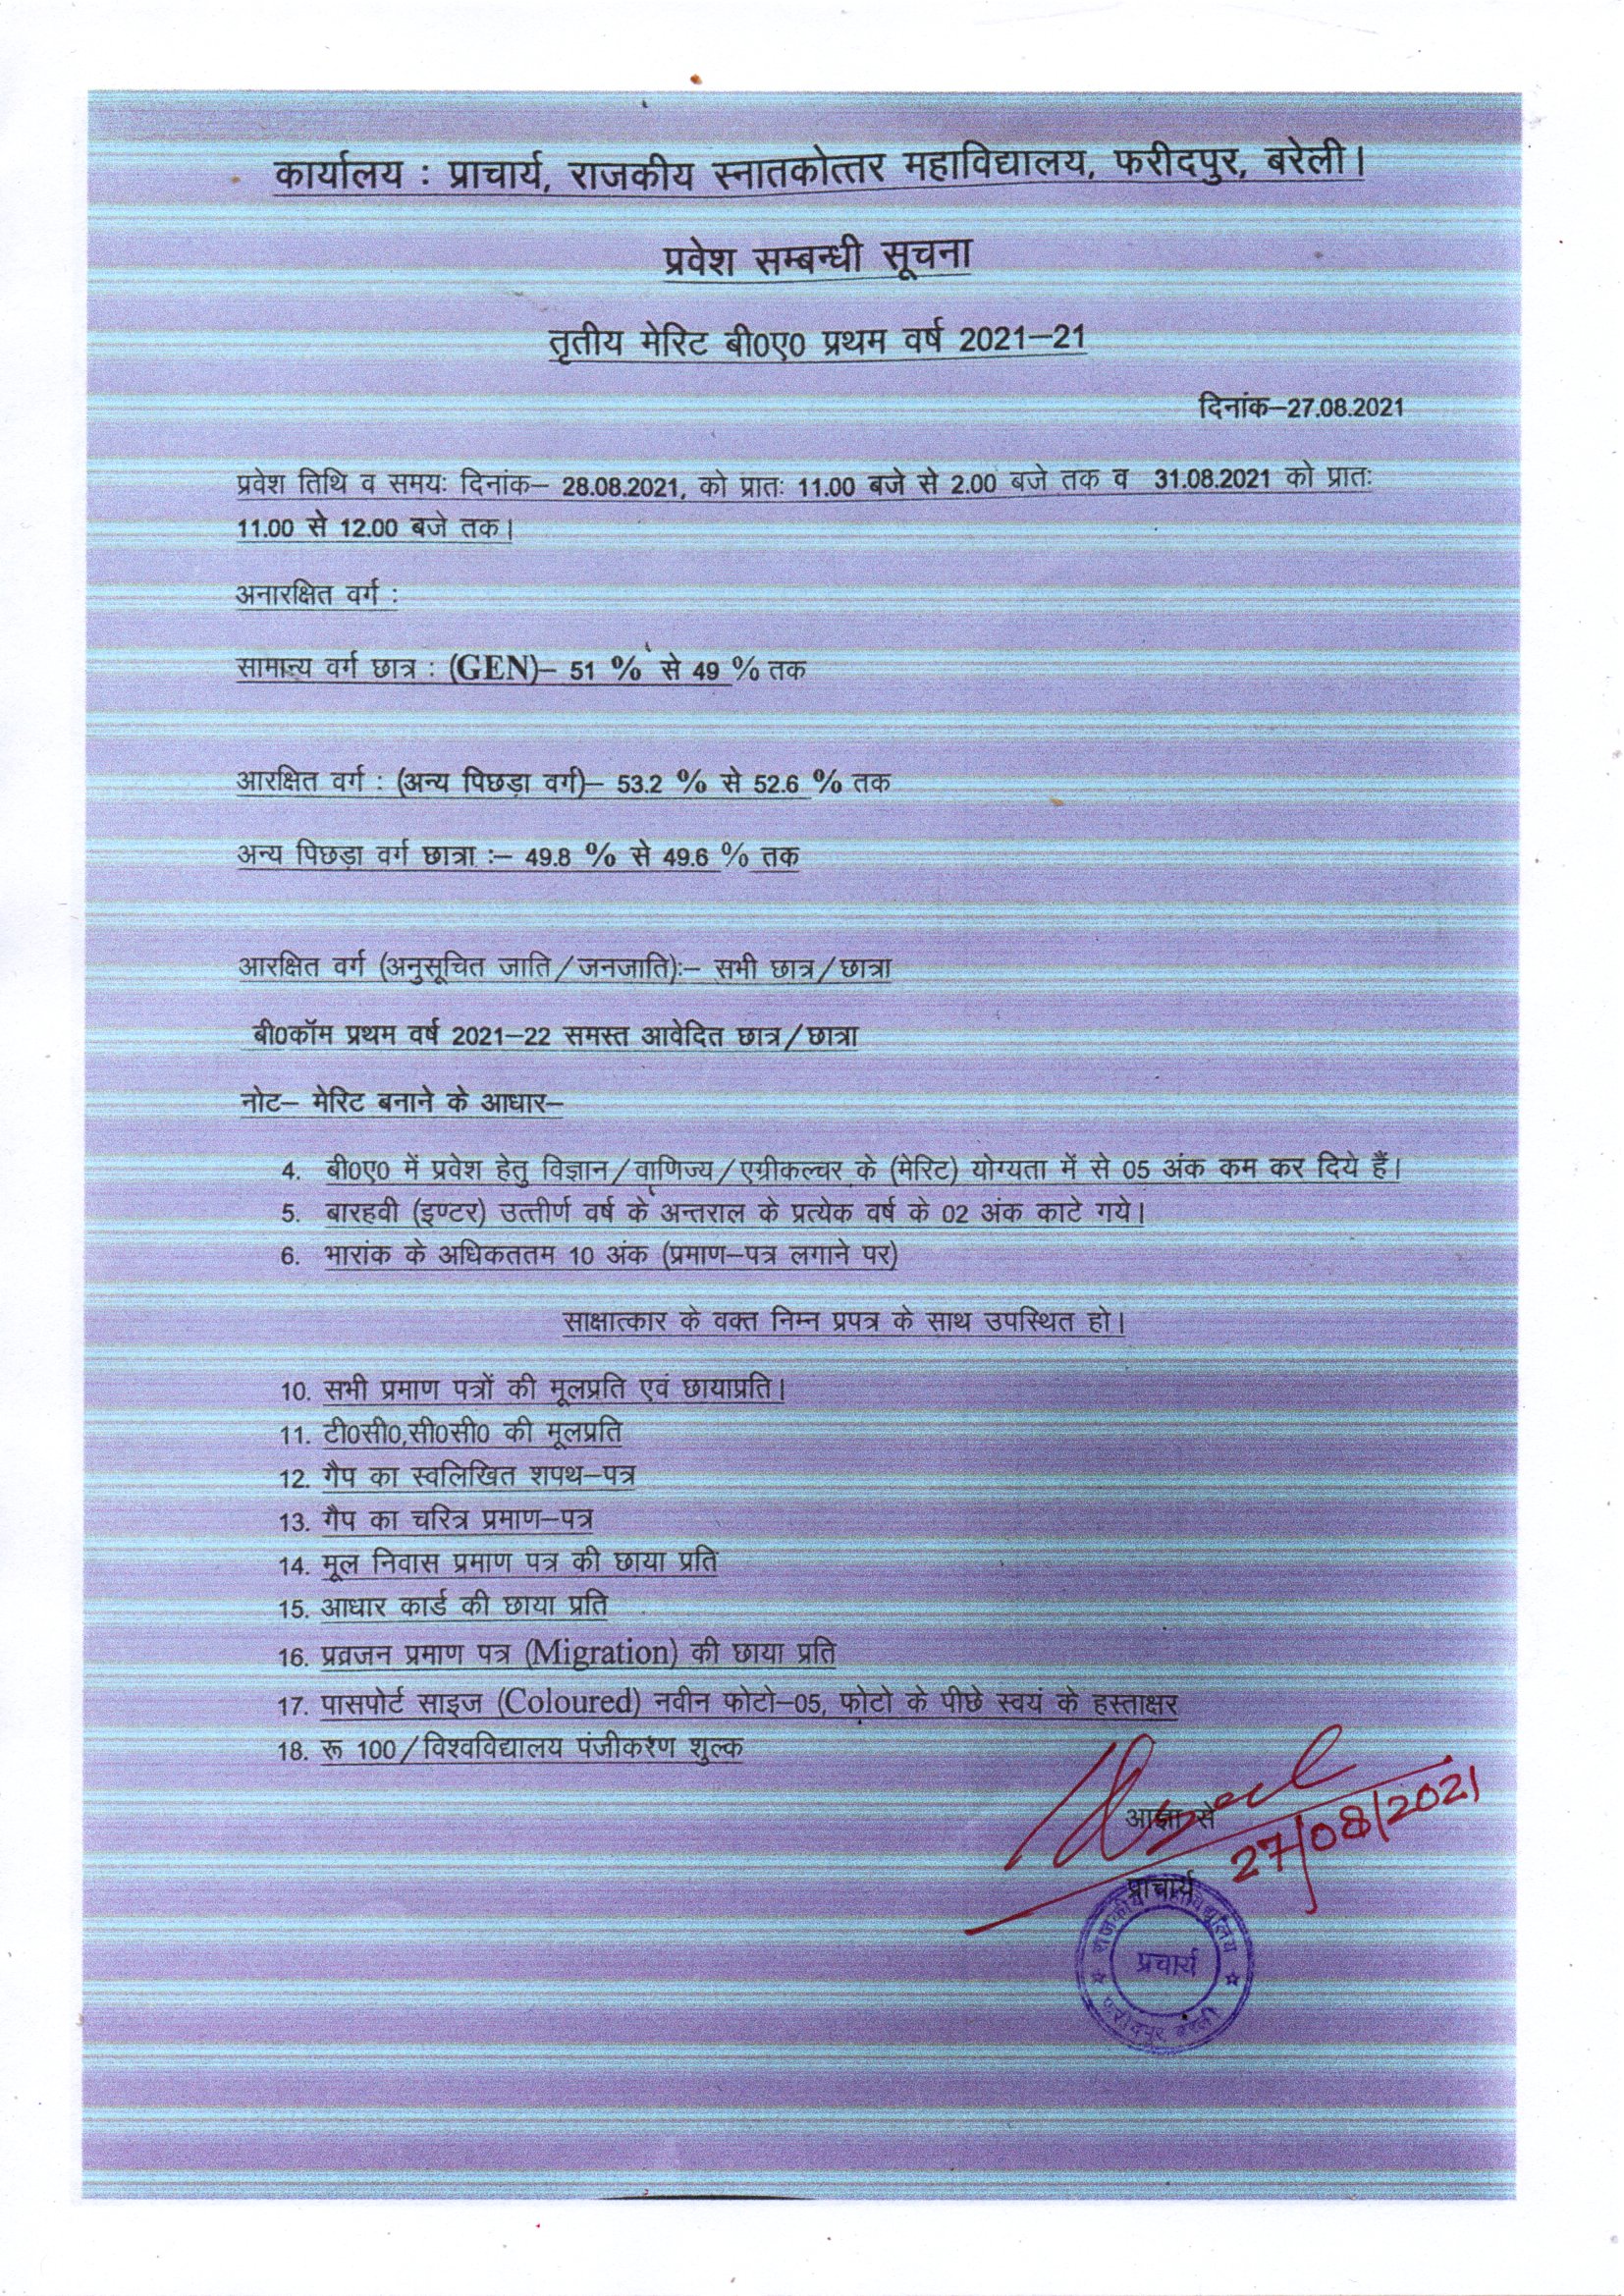 कार्यालय : प्राचार्य, राजकीय स्नातकोत्तर महाविद्यालय, फरीदपुर, बरेली।
प्रवेश सम्बन्धी सूचना
तृतीय मेरिट बी0ए0 प्रथम वर्ष 2021–21
दिनांक–27.08.2021
प्रवेश तिथि व समयः दिनांक– 28.08.2021, को प्रातः 11.00 बजे से 2.00 बजे तक व 31.08.2021 को प्रातः
11.00 से 12.00 बजे तक।
अनारक्षित वर्ग :
सामान्य वर्ग छात्र : (GEN)– 51 % से 49 % तक
आरक्षित वर्ग : (अन्य पिछड़ा वर्ग)– 53.2 % से 52.6 % तक
अन्य पिछड़ा वर्ग छात्रा :– 49.8 % से 49.6 % तक
आरक्षित वर्ग (अनुसूचित जाति/जनजाति):– सभी छात्र/छात्रा
बी0कॉम प्रथम वर्ष 2021–22 समस्त आवेदित छात्र/छात्रा
नोट– मेरिट बनाने के आधार–
4. बी0ए0 में प्रवेश हेतु विज्ञान/वाणिज्य/एग्रीकल्चर के (मेरिट) योग्यता में से 05 अंक कम कर दिये हैं।
5. बारहवी (इण्टर) उत्तीर्ण वर्ष के अन्तराल के प्रत्येक वर्ष के 02 अंक काटे गये।
6. भारांक के अधिकततम 10 अंक (प्रमाण–पत्र लगाने पर)
साक्षात्कार के वक्त निम्न प्रपत्र के साथ उपस्थित हो।
10. सभी प्रमाण पत्रों की मूलप्रति एवं छायाप्रति।
11. टी0सी0,सी0सी0 की मूलप्रति
12. गैप का स्वलिखित शपथ–पत्र
13. गैप का चरित्र प्रमाण–पत्र
14. मूल निवास प्रमाण पत्र की छाया प्रति
15. आधार कार्ड की छाया प्रति
16. प्रव्रजन प्रमाण पत्र (Migration) की छाया प्रति
17. पासपोर्ट साइज (Coloured) नवीन फोटो–05, फोटो के पीछे स्वयं के हस्ताक्षर
18. रू 100/विश्वविद्यालय पंजीकरण शुल्क
आज्ञा से
27/08/2021
प्राचार्य
राजकीय महाविद्यालय
प्रचार्य
फरीदपुर बरेली